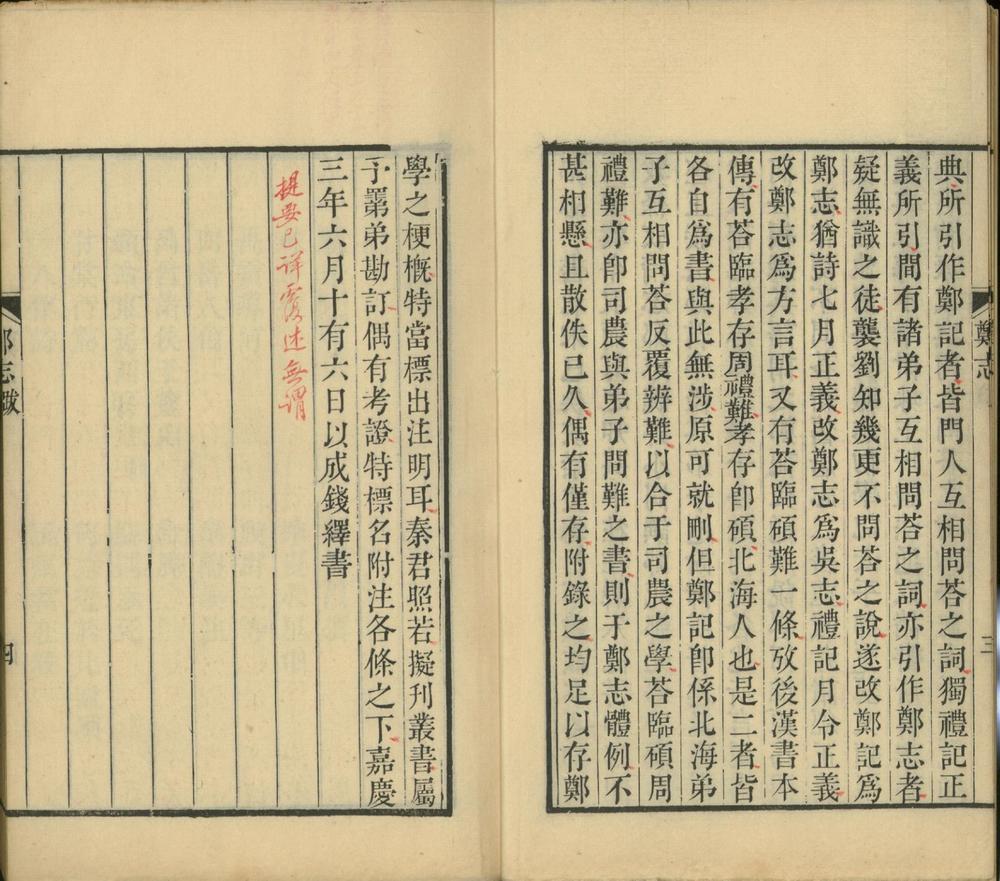 典所引作鄭記者皆門人互相問荅之詞獨禮記正
義所引間有諸弟子互相問荅之詞亦引作鄭志者
疑無識之徒襲劉知幾更不問荅之說遂改鄭記爲
鄭志猶詩七月正義改鄭志爲吳志禮記月令正義
改鄭志爲方言耳又有荅臨碩難一條攷後漢書本
傳有荅臨孝存周禮難孝存卽碩北海人也是二者皆
各自爲書與此無涉原可就刪但鄭記卽係北海弟
子互相問荅反覆辨難以合于司農之學荅臨碩周
禮難亦卽司農與弟子問難之書則于鄭志體例不
甚相懸且散佚已久偶有僅存附錄之均足以存鄭
鄭志
三
學之梗槪特當標出注明耳秦君照若擬刊叢書屬
予署弟勘訂偶有考證特標名附注各條之下嘉慶
三年六月十有六日以成錢繹書
提要已詳覆述無謂
鄭志敍
四